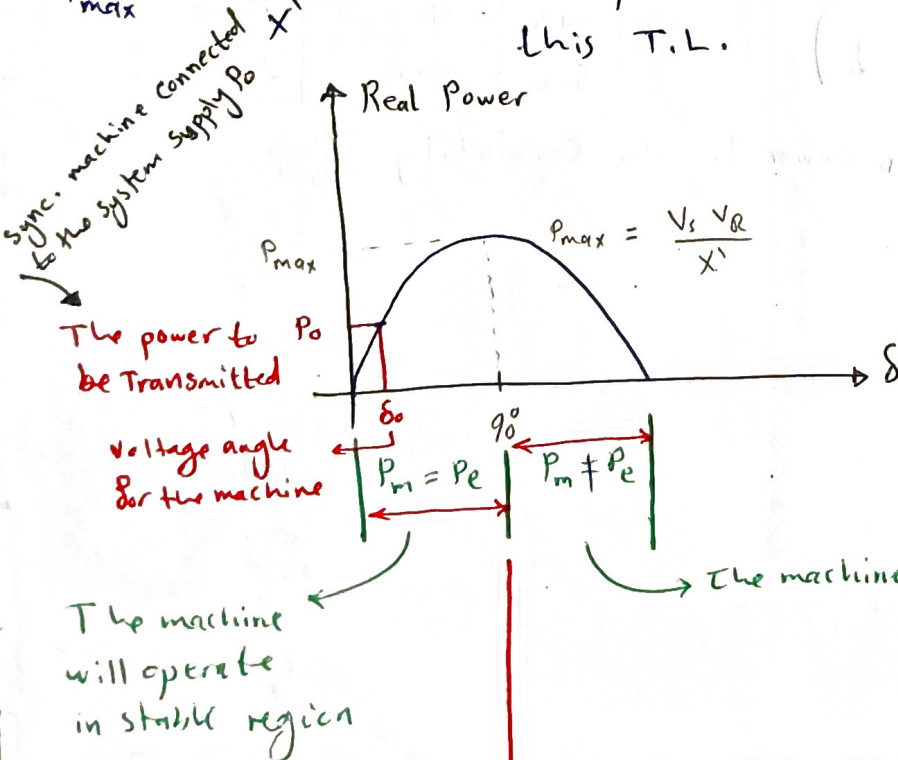 max
X'
this T.L.
Sync. machine connected
to the system supply P₀
Real Power
Pmax
Pmax = Vs VR / X'
The power to
be Transmitted
P₀
δ
δ₀
90°
voltage angle
for the machine
Pm = Pe
Pm ≠ Pe
The machine
will operate
in stable region
the machine